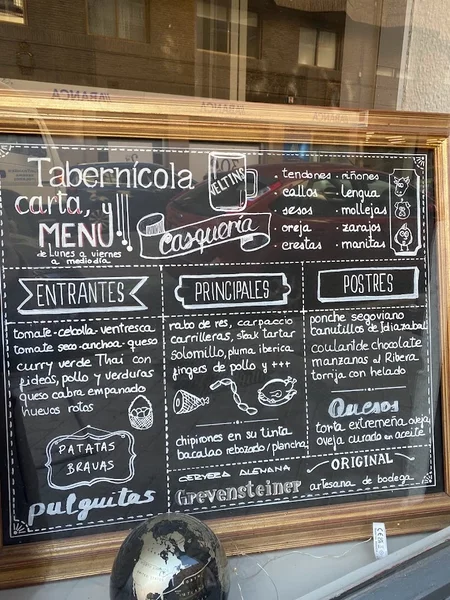 Tabernícola
carta y
MENÚ!!!
de Lunes a viernes
a mediodía
VELTINS
Casquería
. tendones . riñones
. callos . lengua
. sesos . mollejas
. oreja . zarajos
. crestas . manitas
ENTRANTES
tomate-cebolla-ventresca
tomate seco-anchoa-queso
curry verde Thai con
fideos, pollo y verduras
queso cabra empanado
huevos rotos
PATATAS
BRAVAS
pulguitas
PRINCIPALES
rabo de res, carpaccio
carrilleras, steak tartar
solomillo, pluma iberica
fingers de pollo y +++
chipirones en su tinta
bacalao rebozado/plancha
CERVEZA ALEMANA
Grevensteiner
ORIGINAL
artesana de bodega
POSTRES
ponche segoviano
canutillos de Idiazabal
coulant de chocolate
manzanas al Ribera
torrija con helado
Quesos
torta extremeña oveja
oveja curado en aceite